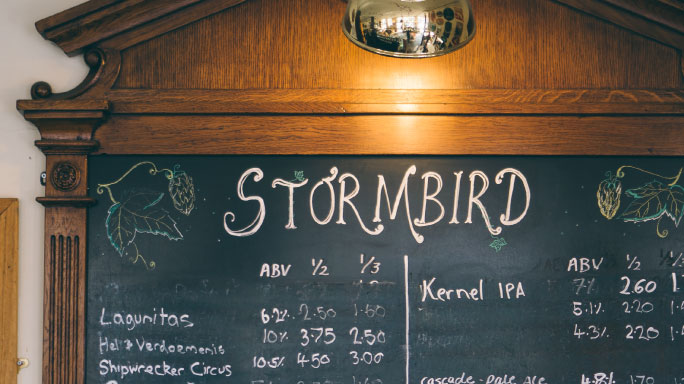 STORMBIRD
ABV ½ ⅓
Lagunitas 6.2% 2.50 1.60
Hel & Verdoemenis 10% 3.75 2.50
Shipwrecker Circus 10.5% 4.50 3.00
ABV ½ ⅓
Kernel IPA 7% 2.60
5.1% 2.20
4.3% 2.20
cascade-pale Ale 4.8% 1.70